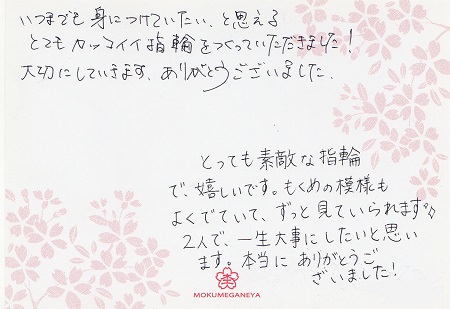 いつまでも身につけていたい、と思える
とてもカッコイイ指輪をつくっていただきました!
大切にしていきます。ありがとうございました。
とっても素敵な指輪
で、嬉しいです。もくめの模様も
よくでていて、ずっと見ていられます
2人で、一生大事にしたいと思い
ます。本当にありがとうご
ざいました!
MOKUMEGANEYA